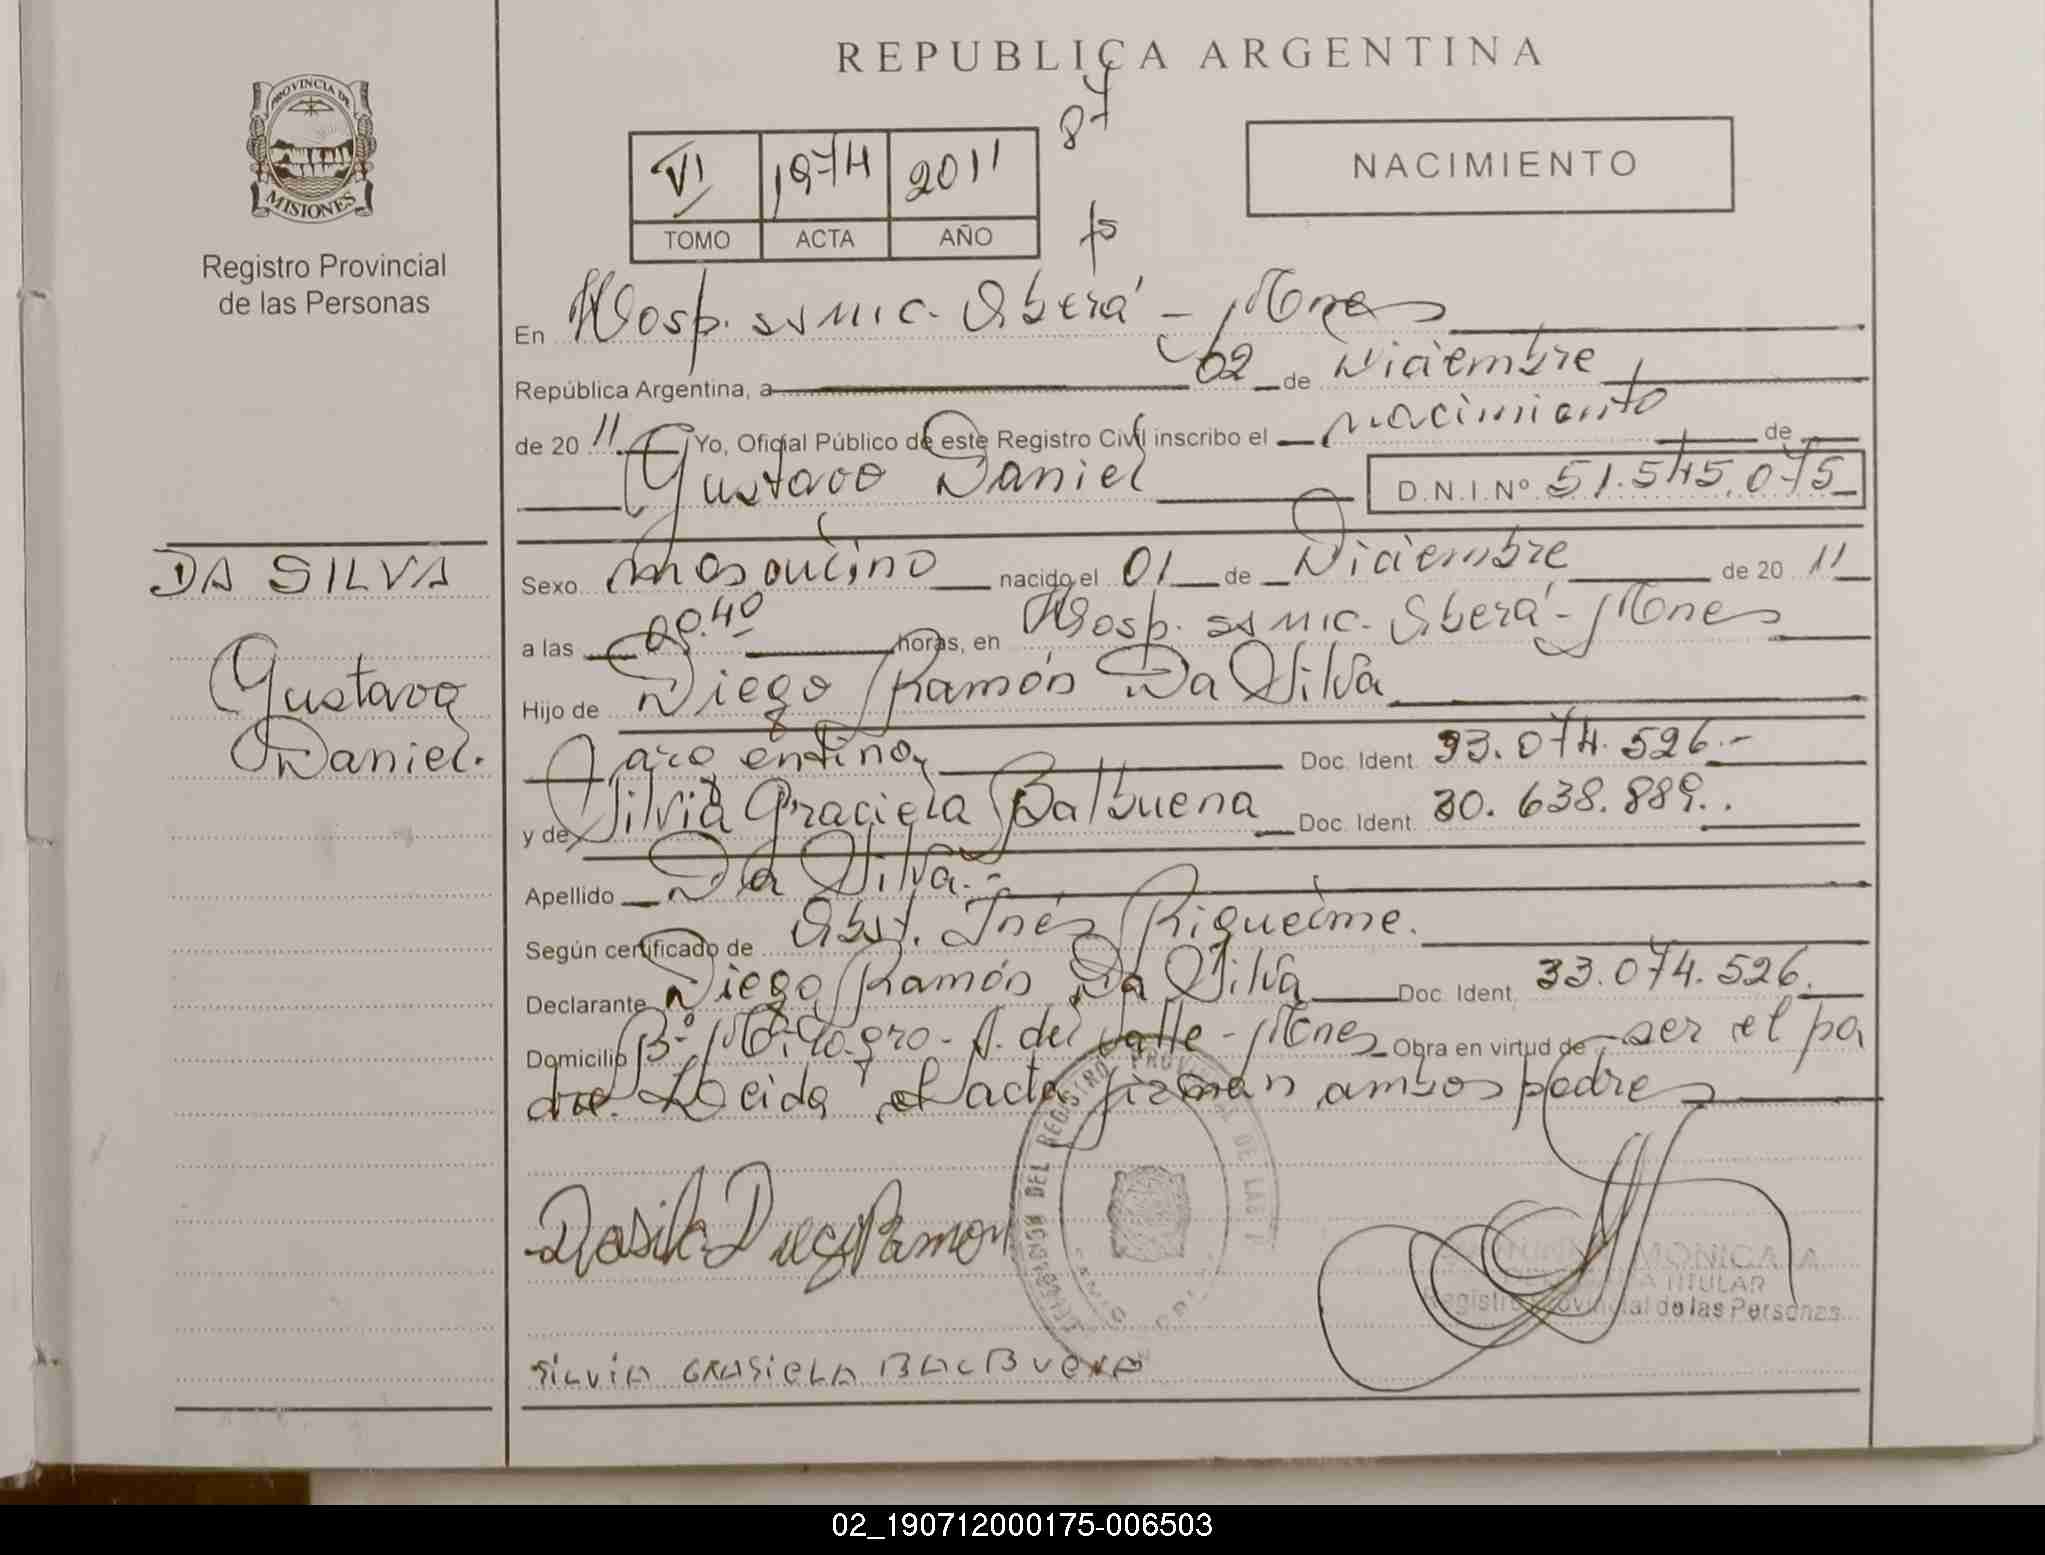 REPUBLICA ARGENTINA
PROVINCIA DE
MISIONES
Registro Provincial
de las Personas
VI 1974 2011
TOMO ACTA AÑO
87
fs
NACIMIENTO
En Hosp. SSMIC. Oberá - Mnes
República Argentina, a 02 de Diciembre
de 2011 Yo, Oficial Público de este Registro Civil inscribo el nacimiento de
Gustavo Daniel D.N.I.Nº 51.545.075
DA SILVA
Gustavo
Daniel.
Sexo masculino nacido el 01 de Diciembre de 2011
a las 00.40 horas, en Hosp. SSMIC. Oberá - Mnes
Hijo de Diego Ramón Da Silva
argentino, Doc. Ident. 33.074.526.-
y de Silvia Graciela Balbuena Doc. Ident. 30.638.889..
Apellido Da Silva.-
Según certificado de Obst. Inés Riquelme.
Declarante Diego Ramón Da Silva Doc. Ident. 33.074.526.
Domicilio Bº Milagro - A. del Valle - Mnes Obra en virtud de ser el pa
dre. Leída el acta firman ambos padres
Dasilva Diego Ramon
DEL REGISTRO PROVINCIAL DE LAS
MONICA A
TITULAR
Registro Provincial de las Personas
SILVIA GRASIELA BALBUENA
02_190712000175-006503